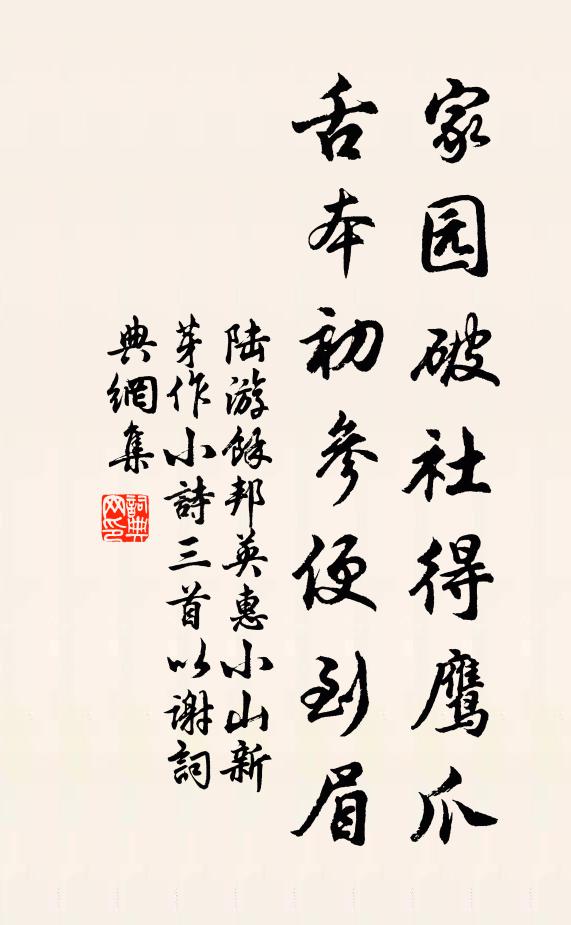 家园破社得鹰爪
舌本初参便到眉
陆游餘邦英惠小山新
芽作小詩三首以谢詞
典網集
詞典
网印